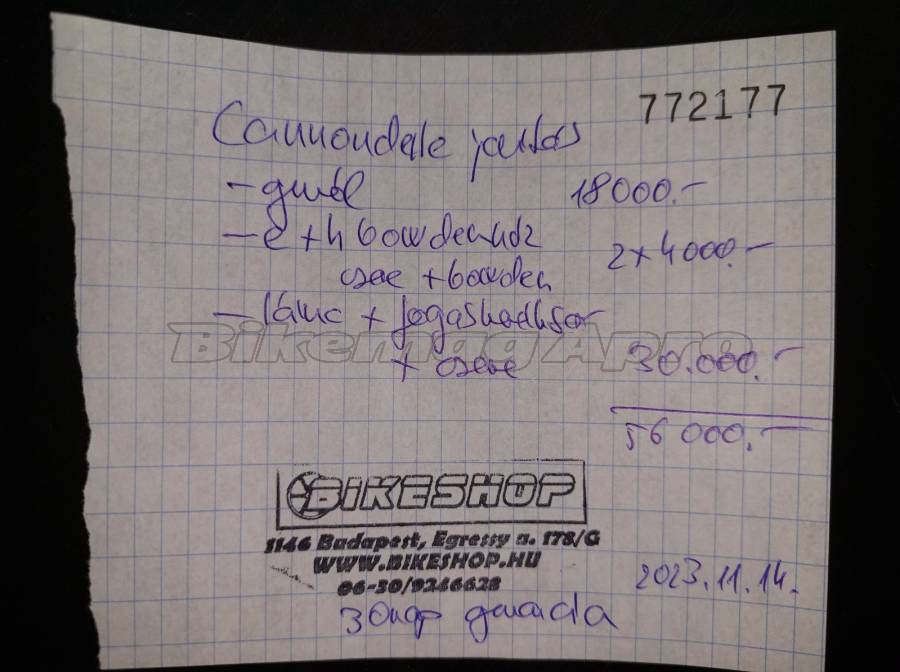 772177
Cannondale javítás
- gumi 18000.-
- e + h bowdenház 2x4000.-
csere + bowden
- lánc + fogaskoszorú 
+ csere 30.000.-
56 000.-
Bikemag Apró
BIKESHOP
1146 Budapest, Egressy u. 178/G
WWW.BIKESHOP.HU
06-30/9246628
2023.11.14.
30nap garancia